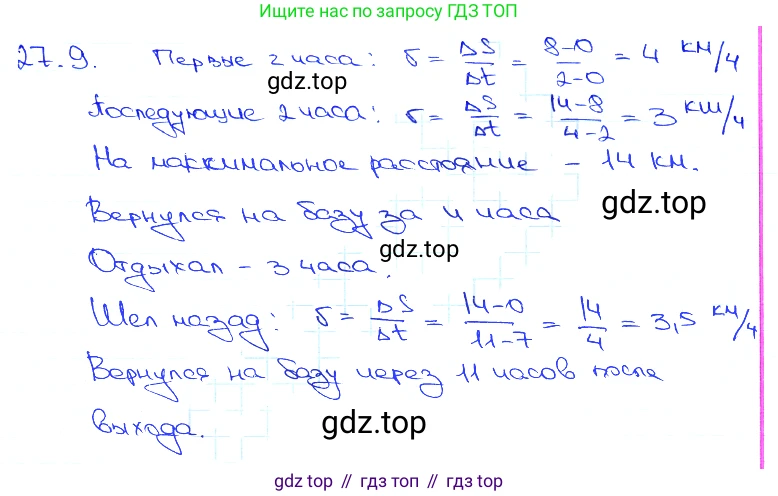 Ищите нас по запросу ГДЗ ТОП
27.9. Первые 2 часа: υ = ΔS/Δt = 8-0/2-0 = 4 км/ч
gdz.top
Последующие 2 часа: υ = ΔS/Δt = 14-8/4-2 = 3 км/ч
На максимальное расстояние - 14 км.
Вернулся на базу за 4 часа
gdz.top
gdz.top
Отдыхал - 3 часа.
Шел назад: υ = ΔS/Δt = 14-0/11-7 = 14/4 = 3,5 км/ч
Вернулся на базу через 11 часов после
выхода.
gdz.top
gdz top // гдз топ // gdz top